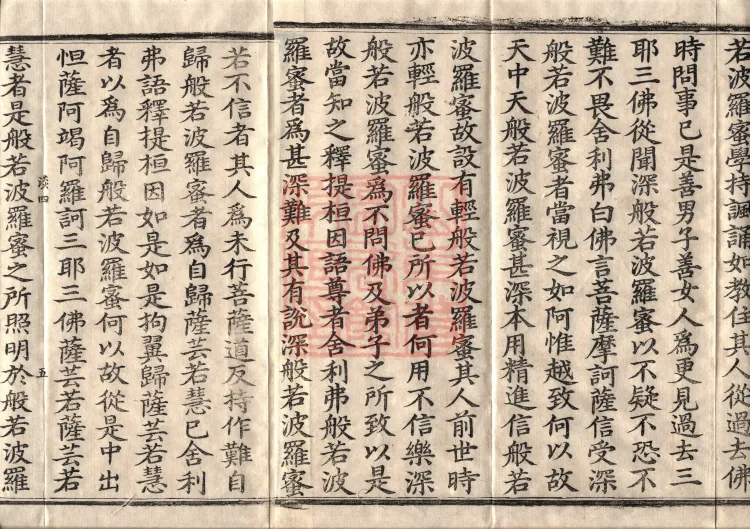 若波羅蜜學持諷誦如教住其人從過去佛
時問事已是善男子善女人爲更見過去三
耶三佛從聞深般若波羅蜜以不疑不恐不
難不畏舍利弗白佛言菩薩摩訶薩信受深
般若波羅蜜者當視之如阿惟越致何以故
天中天般若波羅蜜甚深本用精進信般若
波羅蜜故設有輕般若波羅蜜其人前世時
亦輕般若波羅蜜已所以者何用不信樂深
般若波羅蜜爲不問佛及弟子之所致以是
故當知之釋提桓因語尊者舍利弗般若波
羅蜜者爲甚深難及其有說深般若波羅蜜
若不信者其人爲未行菩薩道反持作難自
歸般若波羅蜜者爲自歸薩芸若慧已舍利
弗語釋提桓因如是如是拘翼歸薩芸若慧
者以爲自歸般若波羅蜜何以故從是中出
怛薩阿竭阿羅訶三耶三佛薩芸若薩芸若
淡四 五
慧者是般若波羅蜜之所照明於般若波羅